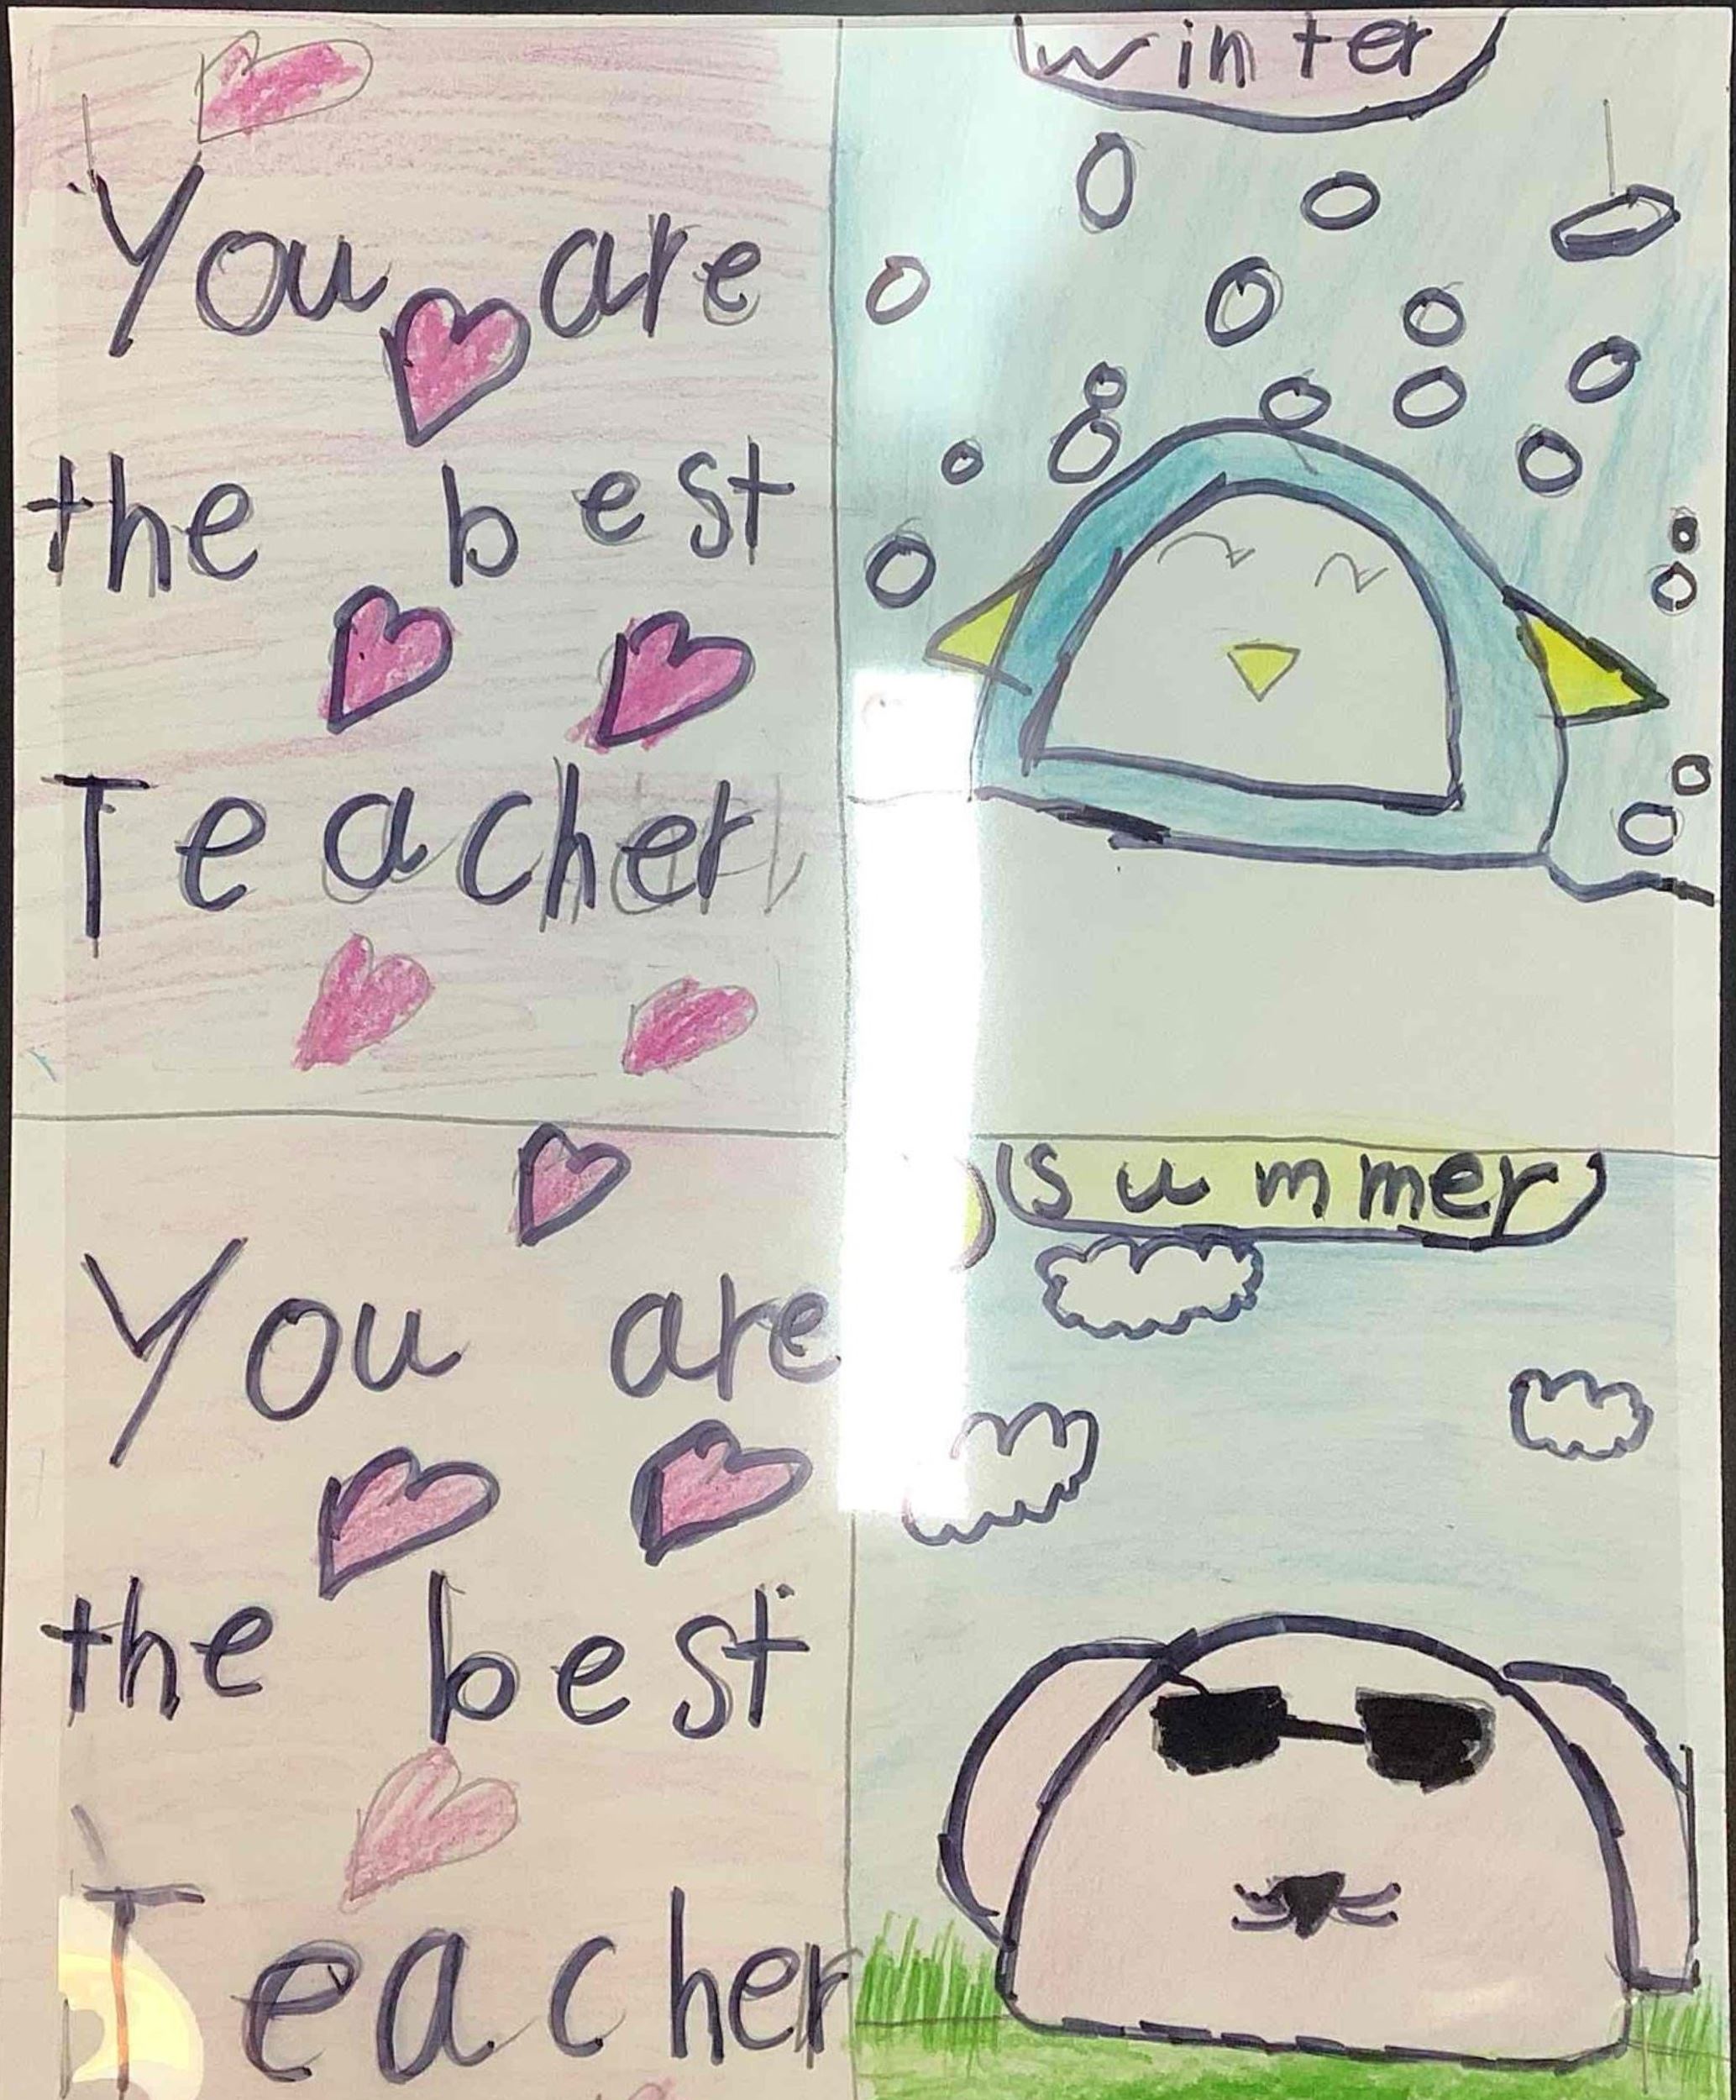 You are
the best
Teacher
winter
You are
the best
Teacher
summer